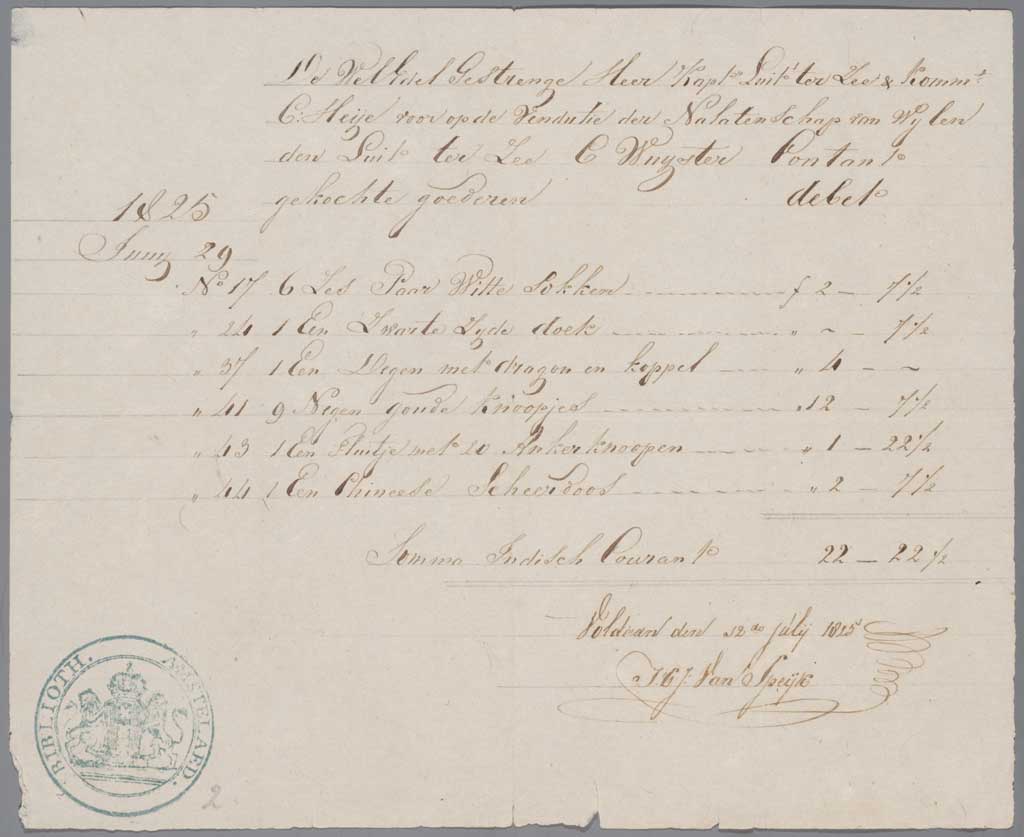 De Wel Edel Gestrenge Heer Kapt Luitt ter Zee & Kommt
C: Heije voor op de Vendutie der Nalatenschap van Wylen
den Luit ter Zee C Wuyster Contant
gekochte goederen debet
1825
Juny 29
No 17 6 Zes Paar Witte Sokken f 2 - 7 1/2
" 24 1 Een Zwarte Zyde doek " ~ - 7 1/2
" 37 1 Een Degen met dragon en koppel " 4 - ~
" 41 9 Negen goude Knoopjes " 12 - 7 1/2
" 43 1 Een Fluitje met 20 Ankerknoopen " 1 - 22 1/2
" 44 1 Een Chineese Scheerdoos " 2 - 7 1/2
Somma Indisch Courant 22 - 22 1/2
Voldaan den 12de july 1825
J C J Van Speijk
BIBLIOTH. AMSTELAED.
2